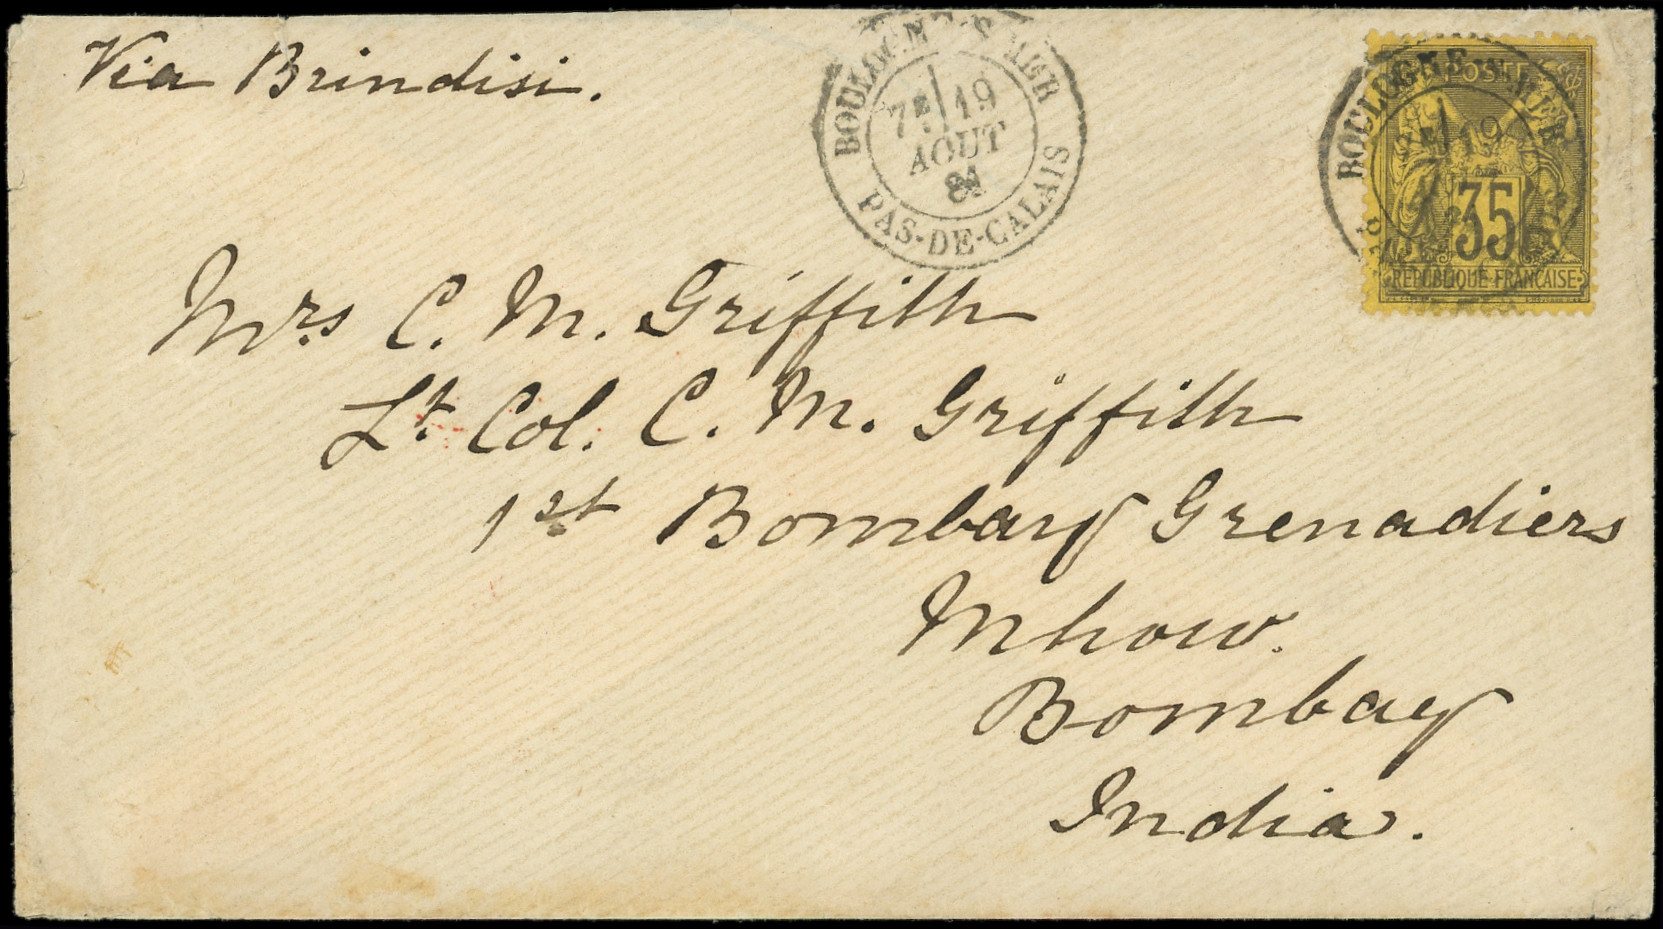 Via Brindisi.
BOULOGNE-S-MER
7E 19
AOUT
81
PAS-DE-CALAIS
BOULOGNE-S-MER
19
POSTES
35
RÉPUBLIQUE FRANÇAISE
Mrs C. M. Griffith
Lt. Col. C. M. Griffith
1st Bombay Grenadiers
Mhow.
Bombay
India.